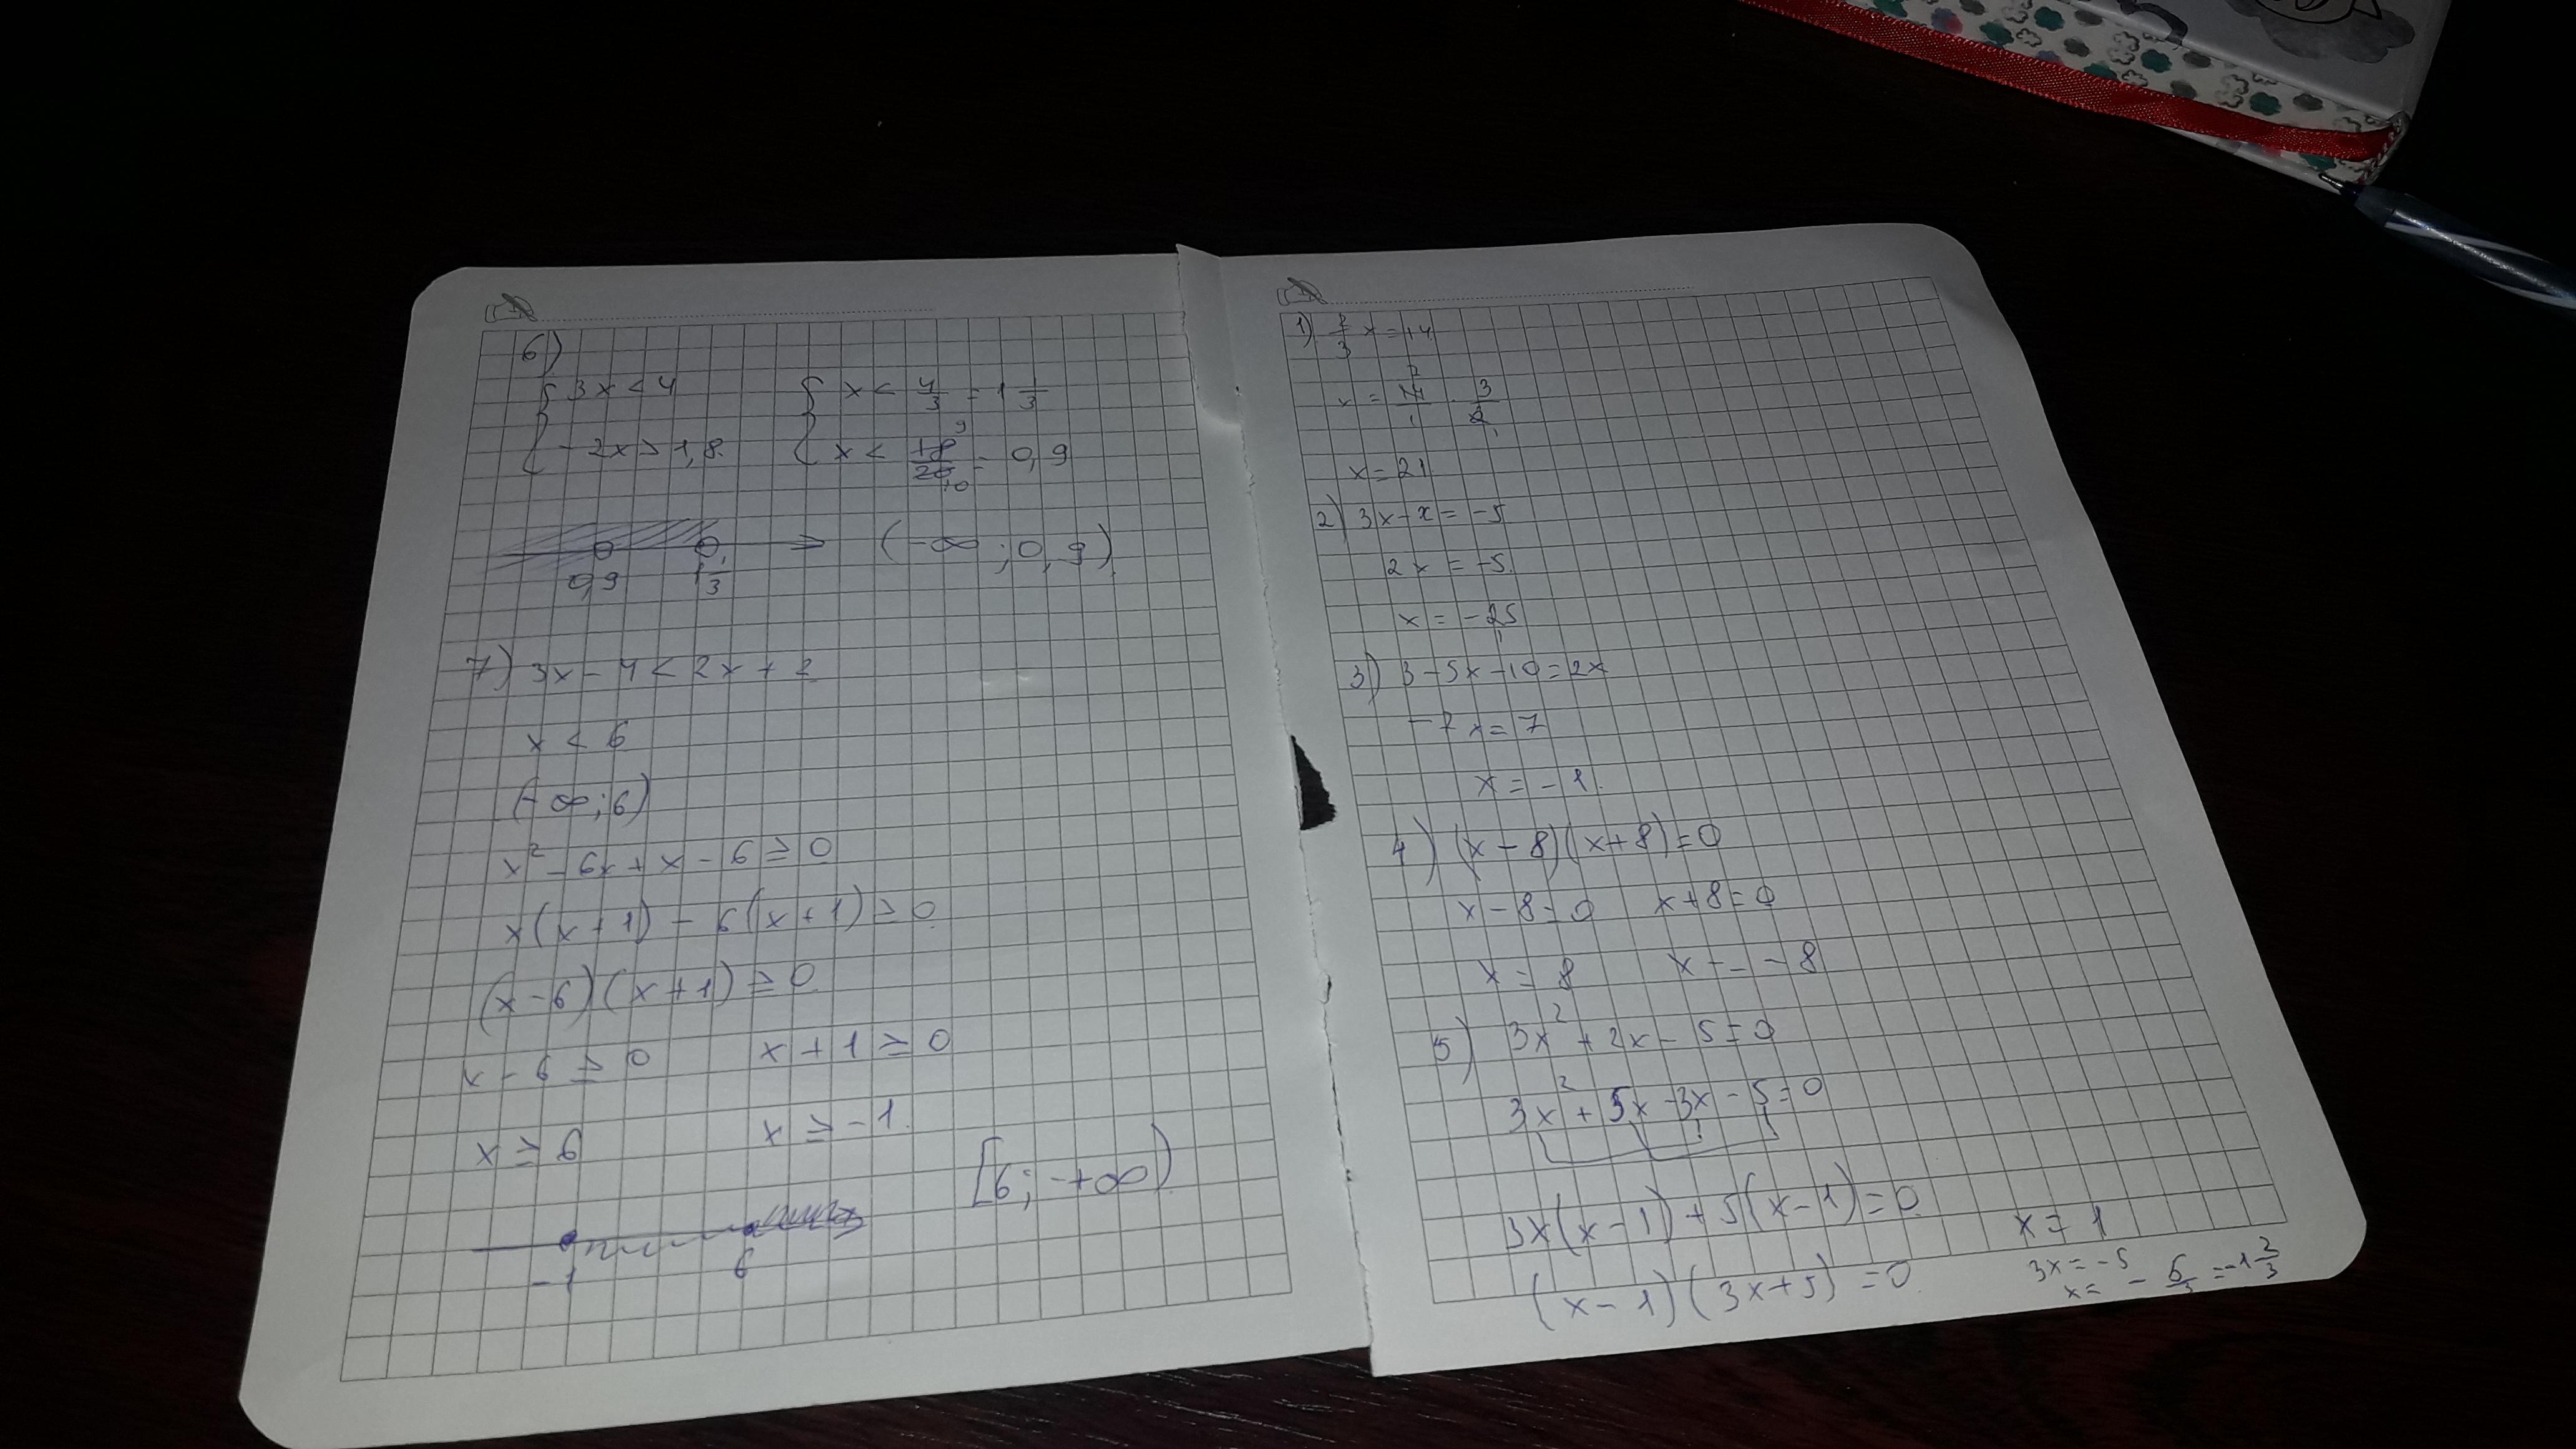 6)
{ 3x < 4    { x < 4/3 = 1 1/3
{ -2x > 1,8    { x < 18/20 = 0,9
9
10
0,9    1 1/3    (-∞; 0,9)
7) 3x - 4 < 2x + 2
x < 6
(-∞; 6)
x² - 6x + x - 6 ≥ 0
x(x + 1) - 6(x + 1) ≥ 0
(x - 6)(x + 1) ≥ 0
x - 6 ≥ 0    x + 1 ≥ 0
x ≥ 6    x ≥ -1
[6; +∞)
-1    6
1) 2/3 x = 14
x = 14/1 · 3/2
7
1
x = 21
2) 3x - x = -5
2x = -5
x = -2,5
3) 3 - 5x - 10 = 2x
-7x = 7
x = -1
4) (x - 8)(x + 8) = 0
x - 8 = 0    x + 8 = 0
x = 8    x = -8
5) 3x² + 2x - 5 = 0
3x² + 5x - 3x - 5 = 0
3x(x - 1) + 5(x - 1) = 0
(x - 1)(3x + 5) = 0
x = 1
3x = -5
x = - 5/3 = -1 2/3